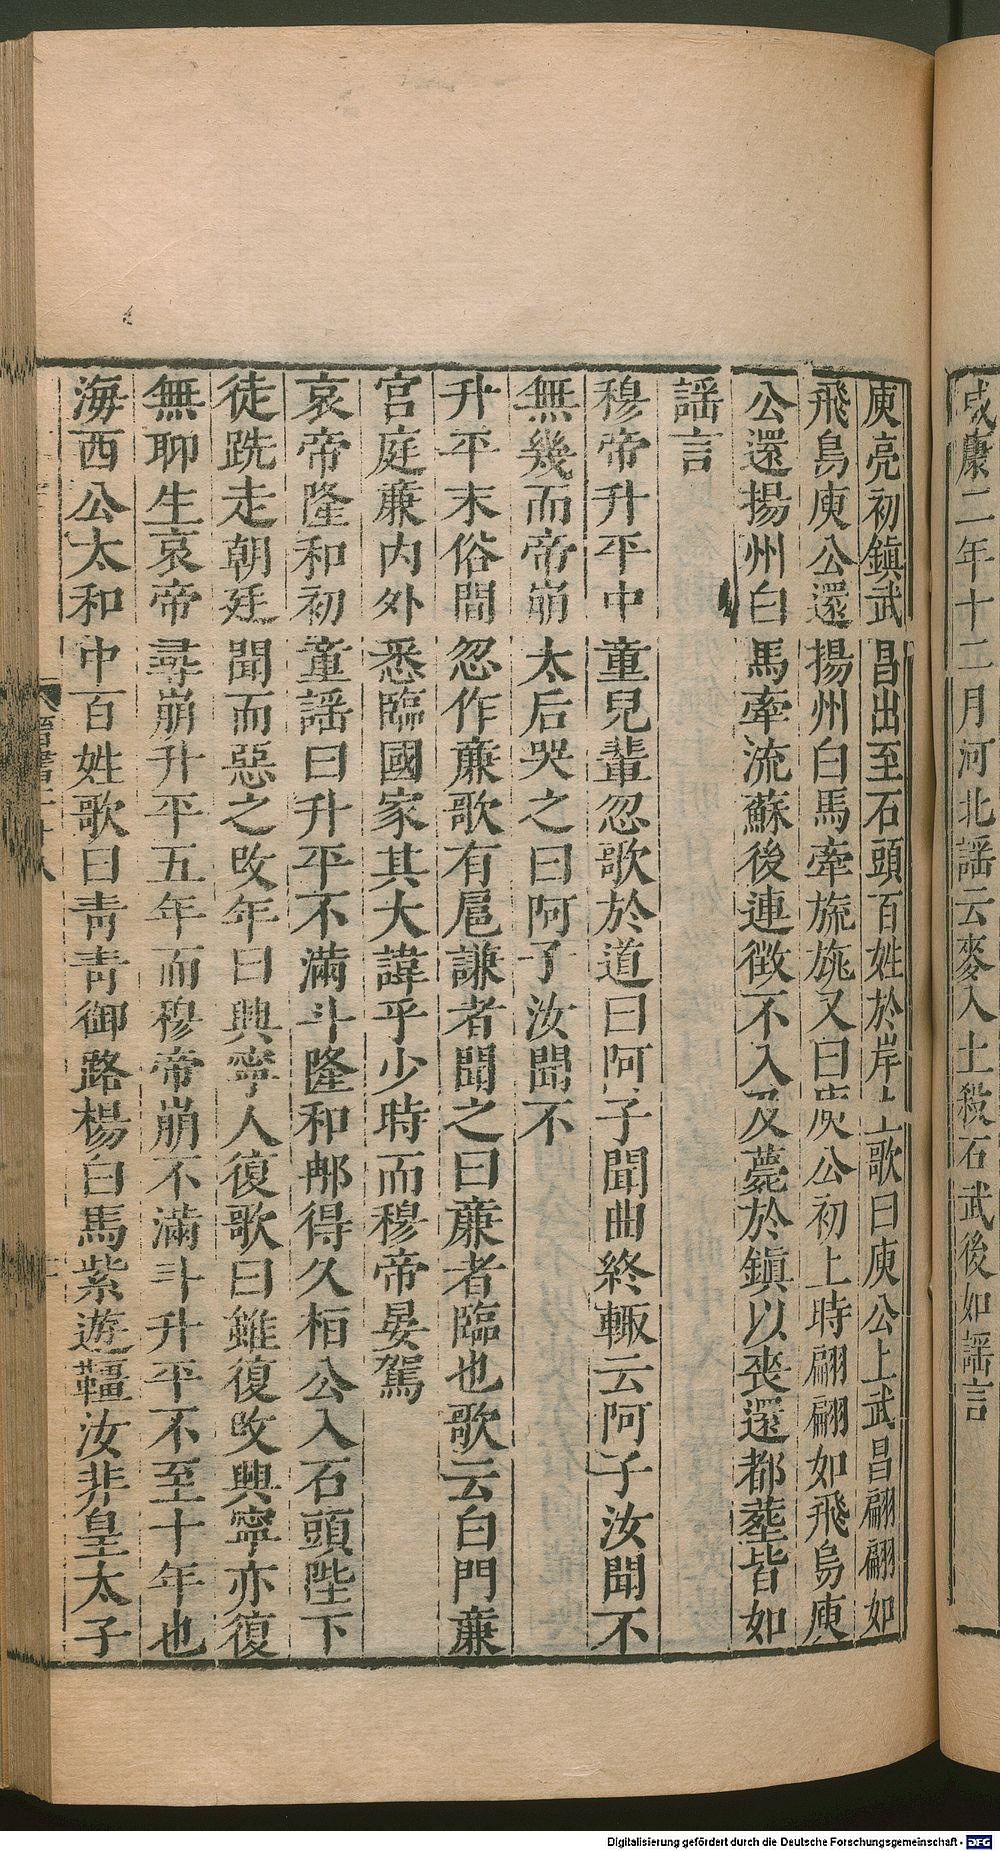 咸康二年十二月河北謠云麥入土殺石武後如謠言
庾亮初鎮武昌出至石頭百姓於岸上歌曰庾公上武昌翩翩如
飛鳥庾公還揚州白馬牽旒旐又曰庾公初上時翩翩如飛烏庾
公還揚州白馬牽流蘇後連徵不入及薨於鎮以喪還都葬皆如
謠言
穆帝升平中童兒輩忽歌於道曰阿子聞曲終輙云阿子汝聞不
無幾而帝崩太后哭之曰阿子汝聞不
升平末俗間忽作廉歌有扈謙者聞之曰廉者臨也歌云白門廉
宮庭廉內外悉臨國家其大諱乎少時而穆帝晏駕
哀帝隆和初童謠曰升平不滿斗隆和那得久桓公入石頭陛下
徒跣走朝廷聞而惡之改年曰興寧人復歌曰雖復改興寧亦復
無聊生哀帝尋崩升平五年而穆帝崩不滿斗升平不至十年也
海西公太和中百姓歌曰青青御路楊白馬紫遊韁汝非皇太子
Digitalisierung gefördert durch die Deutsche Forschungsgemeinschaft - DFG